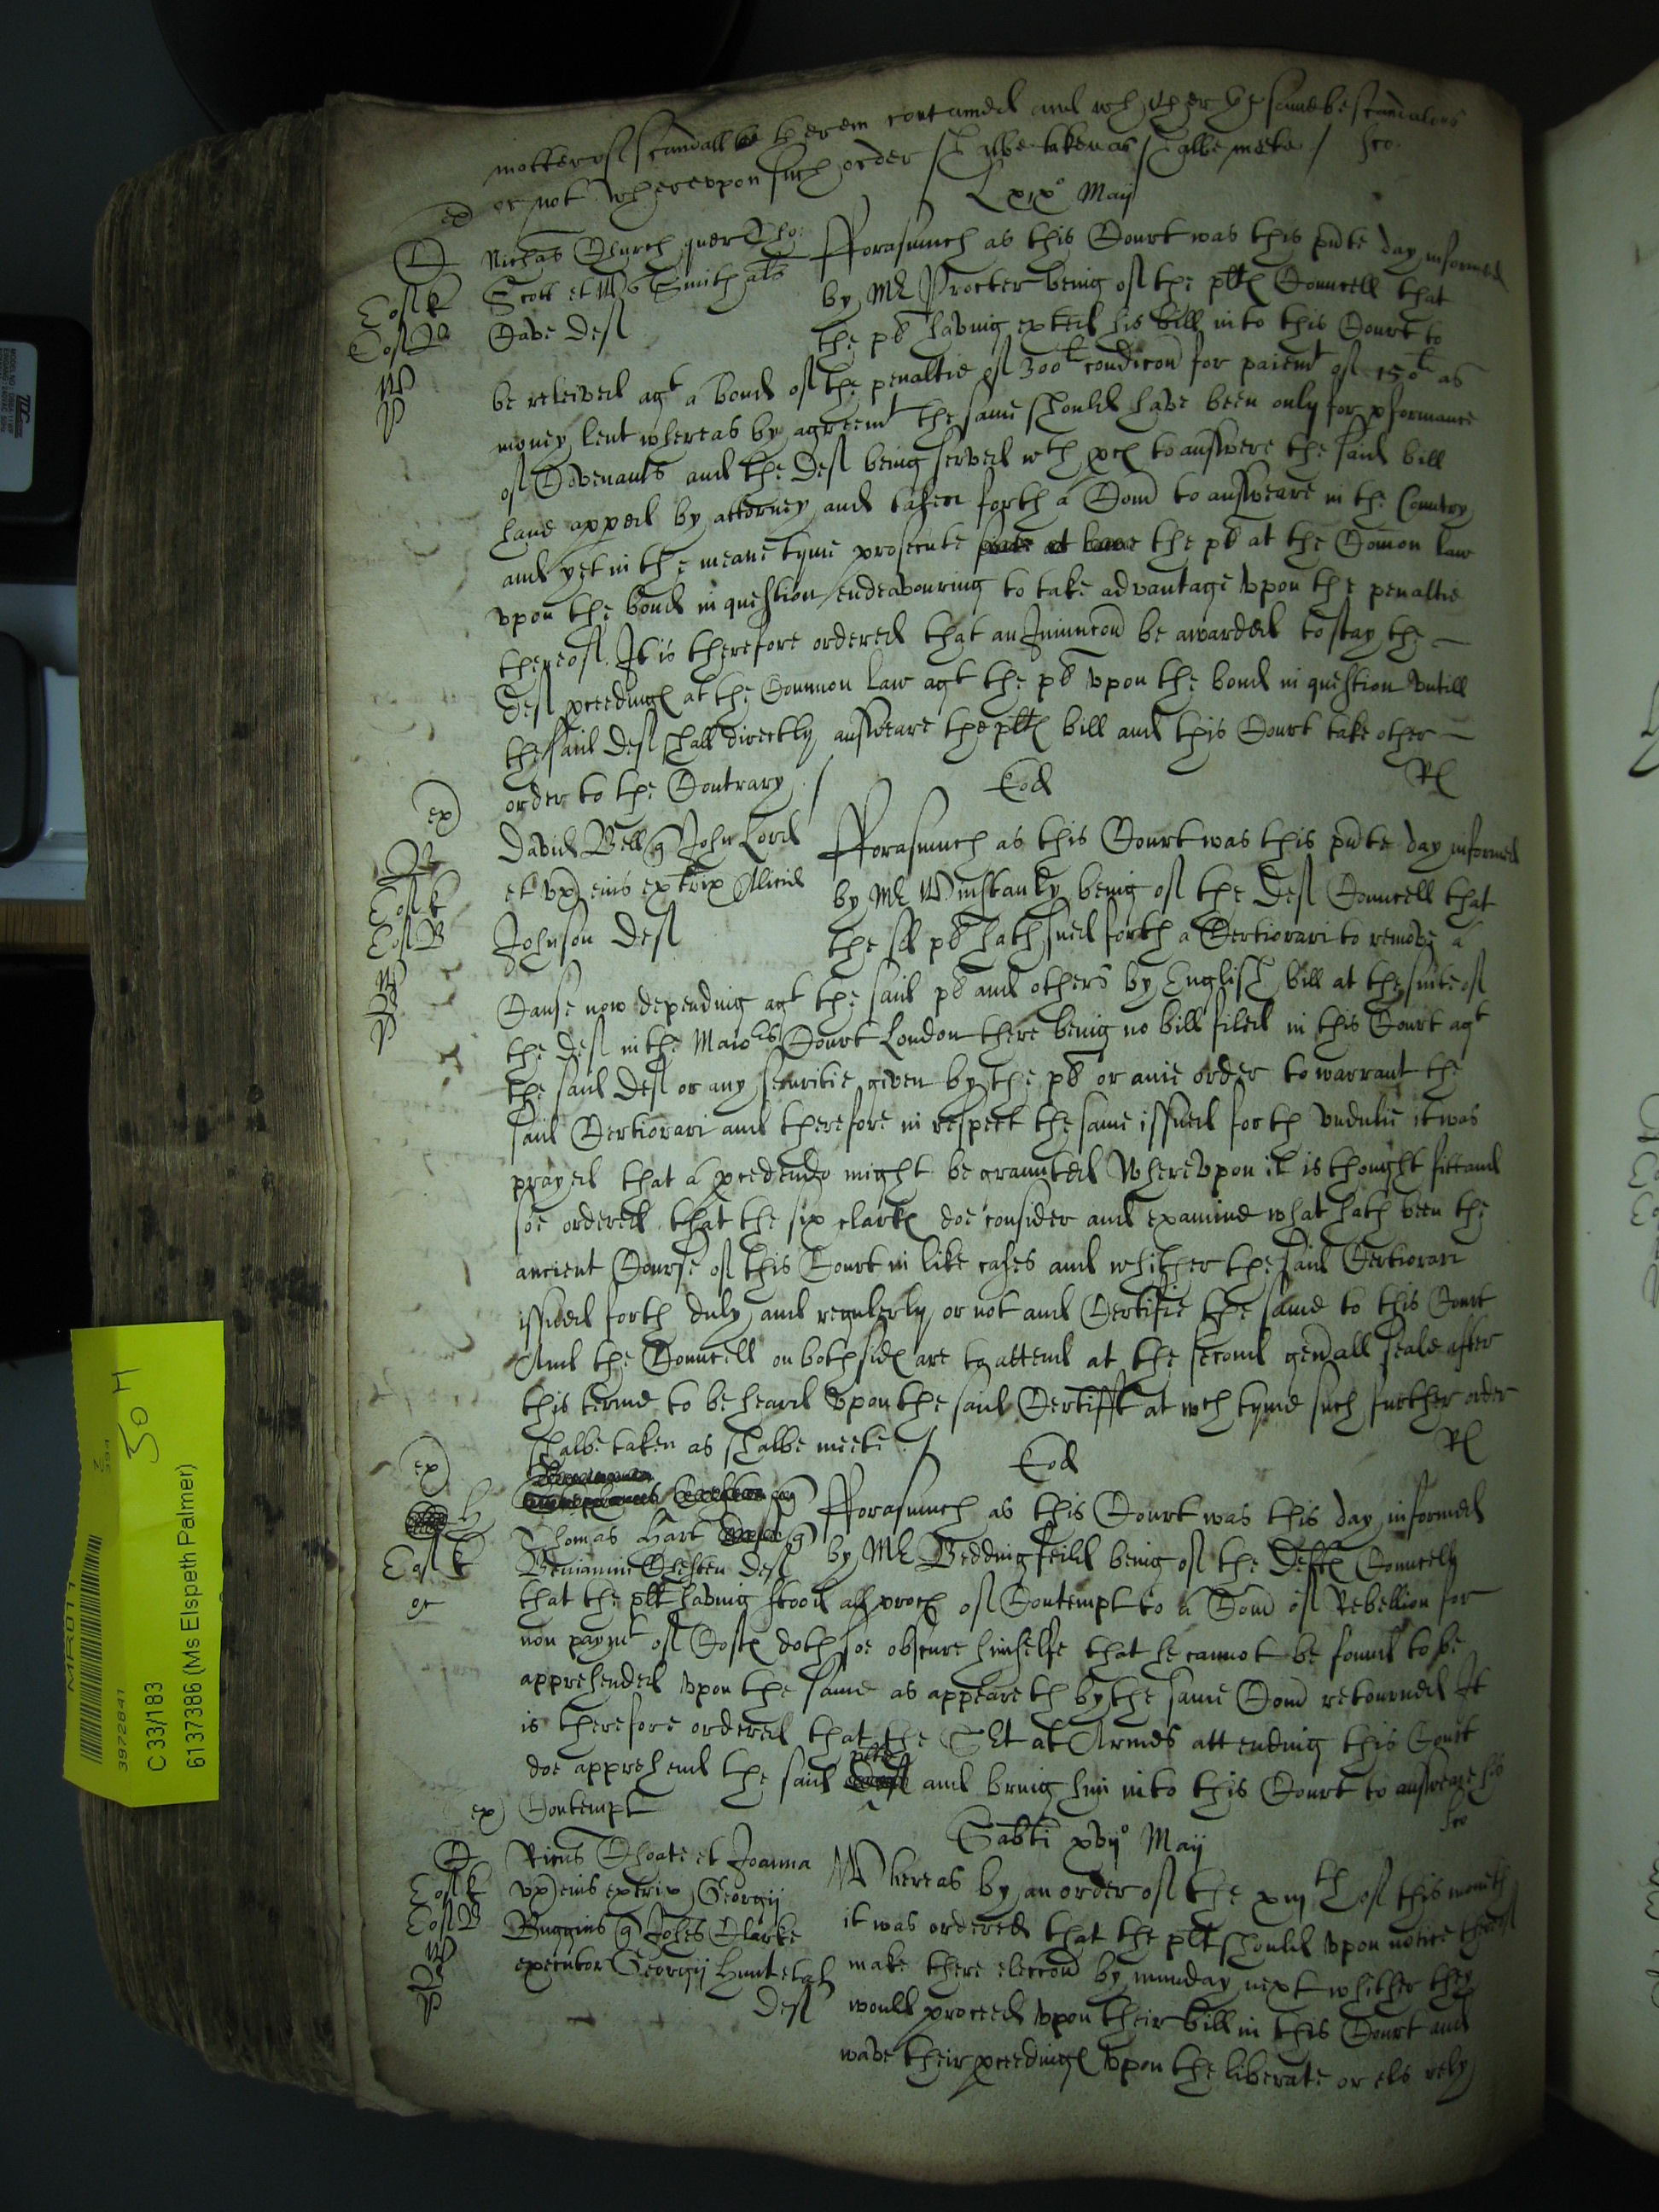 matter of scandall be herein contained and whither the same be scandalous
or not. Whereupon such order shalbe taken as shalbe meete / sco.
Lxix° May
ex
Nichas Church quer Tho:
Scott et Smith als
Cave def
fforasmuch as this Court was this pnte day informed
by Mr Procter being of the pltes Councell that
the pt having exted his bill into this Court to
be releived agt a bond of the penaltie of 300l condicon for paiemt of 150l as
money lent whereas by agreemt the same should have been only for pformance
of Covenants and the def being served wth pces to answere the said bill
have apped by attorney and taken forth a Com to answeare in the Country
and yet in the meane tyme prosecute the pt at the Comon law
vpon the bond in question endeavouring to take advantage vpon the penaltie
thereof. It is therefore ordered that an Iniunccon be awarded to stay the
def pceedinges at the Common law agt the pt vpon the bond in question vntill
the said def shall directly answeare the pltes bill and this Court take other
order to the Contrary /
Eod
Rl
ex
David Bell q John Lord
et vx eius extrix Alicie
Johnson def
fforasmuch as this Court was this pnte day informed
by Mr Winstanly being of the def Councell that
the sd pt hath sued forth a Certiorari to remove a
Cause now depending agt the said pt and others by English bill at the suite of
the def in the Maiors Court London there being no bill filed in this Court agt
the said def or any securitie given by the pt or anie order to warrant the
said Certiorari and therefore in respect the same issued forth vndulie it was
prayed that a pcedendo might be graunted Wherevpon it is thought fitt and
soe ordered that the six clarkes doe consider and examine what hath been the
ancient Course of this Court in like cases and whither the said Certiorari
issued forth duly and regulerly or not and Certifie the same to this Court
And the Councell on both sides are to attend at the second genall seale after
this terme to be heard vpon the said Certifft at wch tyme such further order
shalbe taken as shalbe meete /
Eod
Rl
ex
H
Thomas Hart q
Beniamin Chesten def
fforasmuch as this Court was this day informed
by Mr Beddingfeild being of the deftes Councell
that the plt having stood all proces of Contempt to a Com of Rebellion for
non paymt of Costes doth soe obscure himselfe that he cannot be found to be
apprehended vpon the same as appeareth by the same Com retourned It
is therefore ordered that the Srt at Armes attending this Court
doe apprehend the said plte and bring him into this Court to answeare his
Contempt
sco
ex
Sabti xvij° May
Ricus Choate et Joanna
vx eius extrix Georgij
Buggins q Johes Clarke
executor Georgij Hunt et al
def
Whereas by an order of the xiijth of this moneth
it was ordered that the plt should vpon notice thereof
make there eleccon by munday next whither they
would proceed vpon their bill in this Court and
wave their pceedinges vpon the liberate or els rely
3972841
C 33/183
6137386 (Ms Elspeth Palmer)
50 H